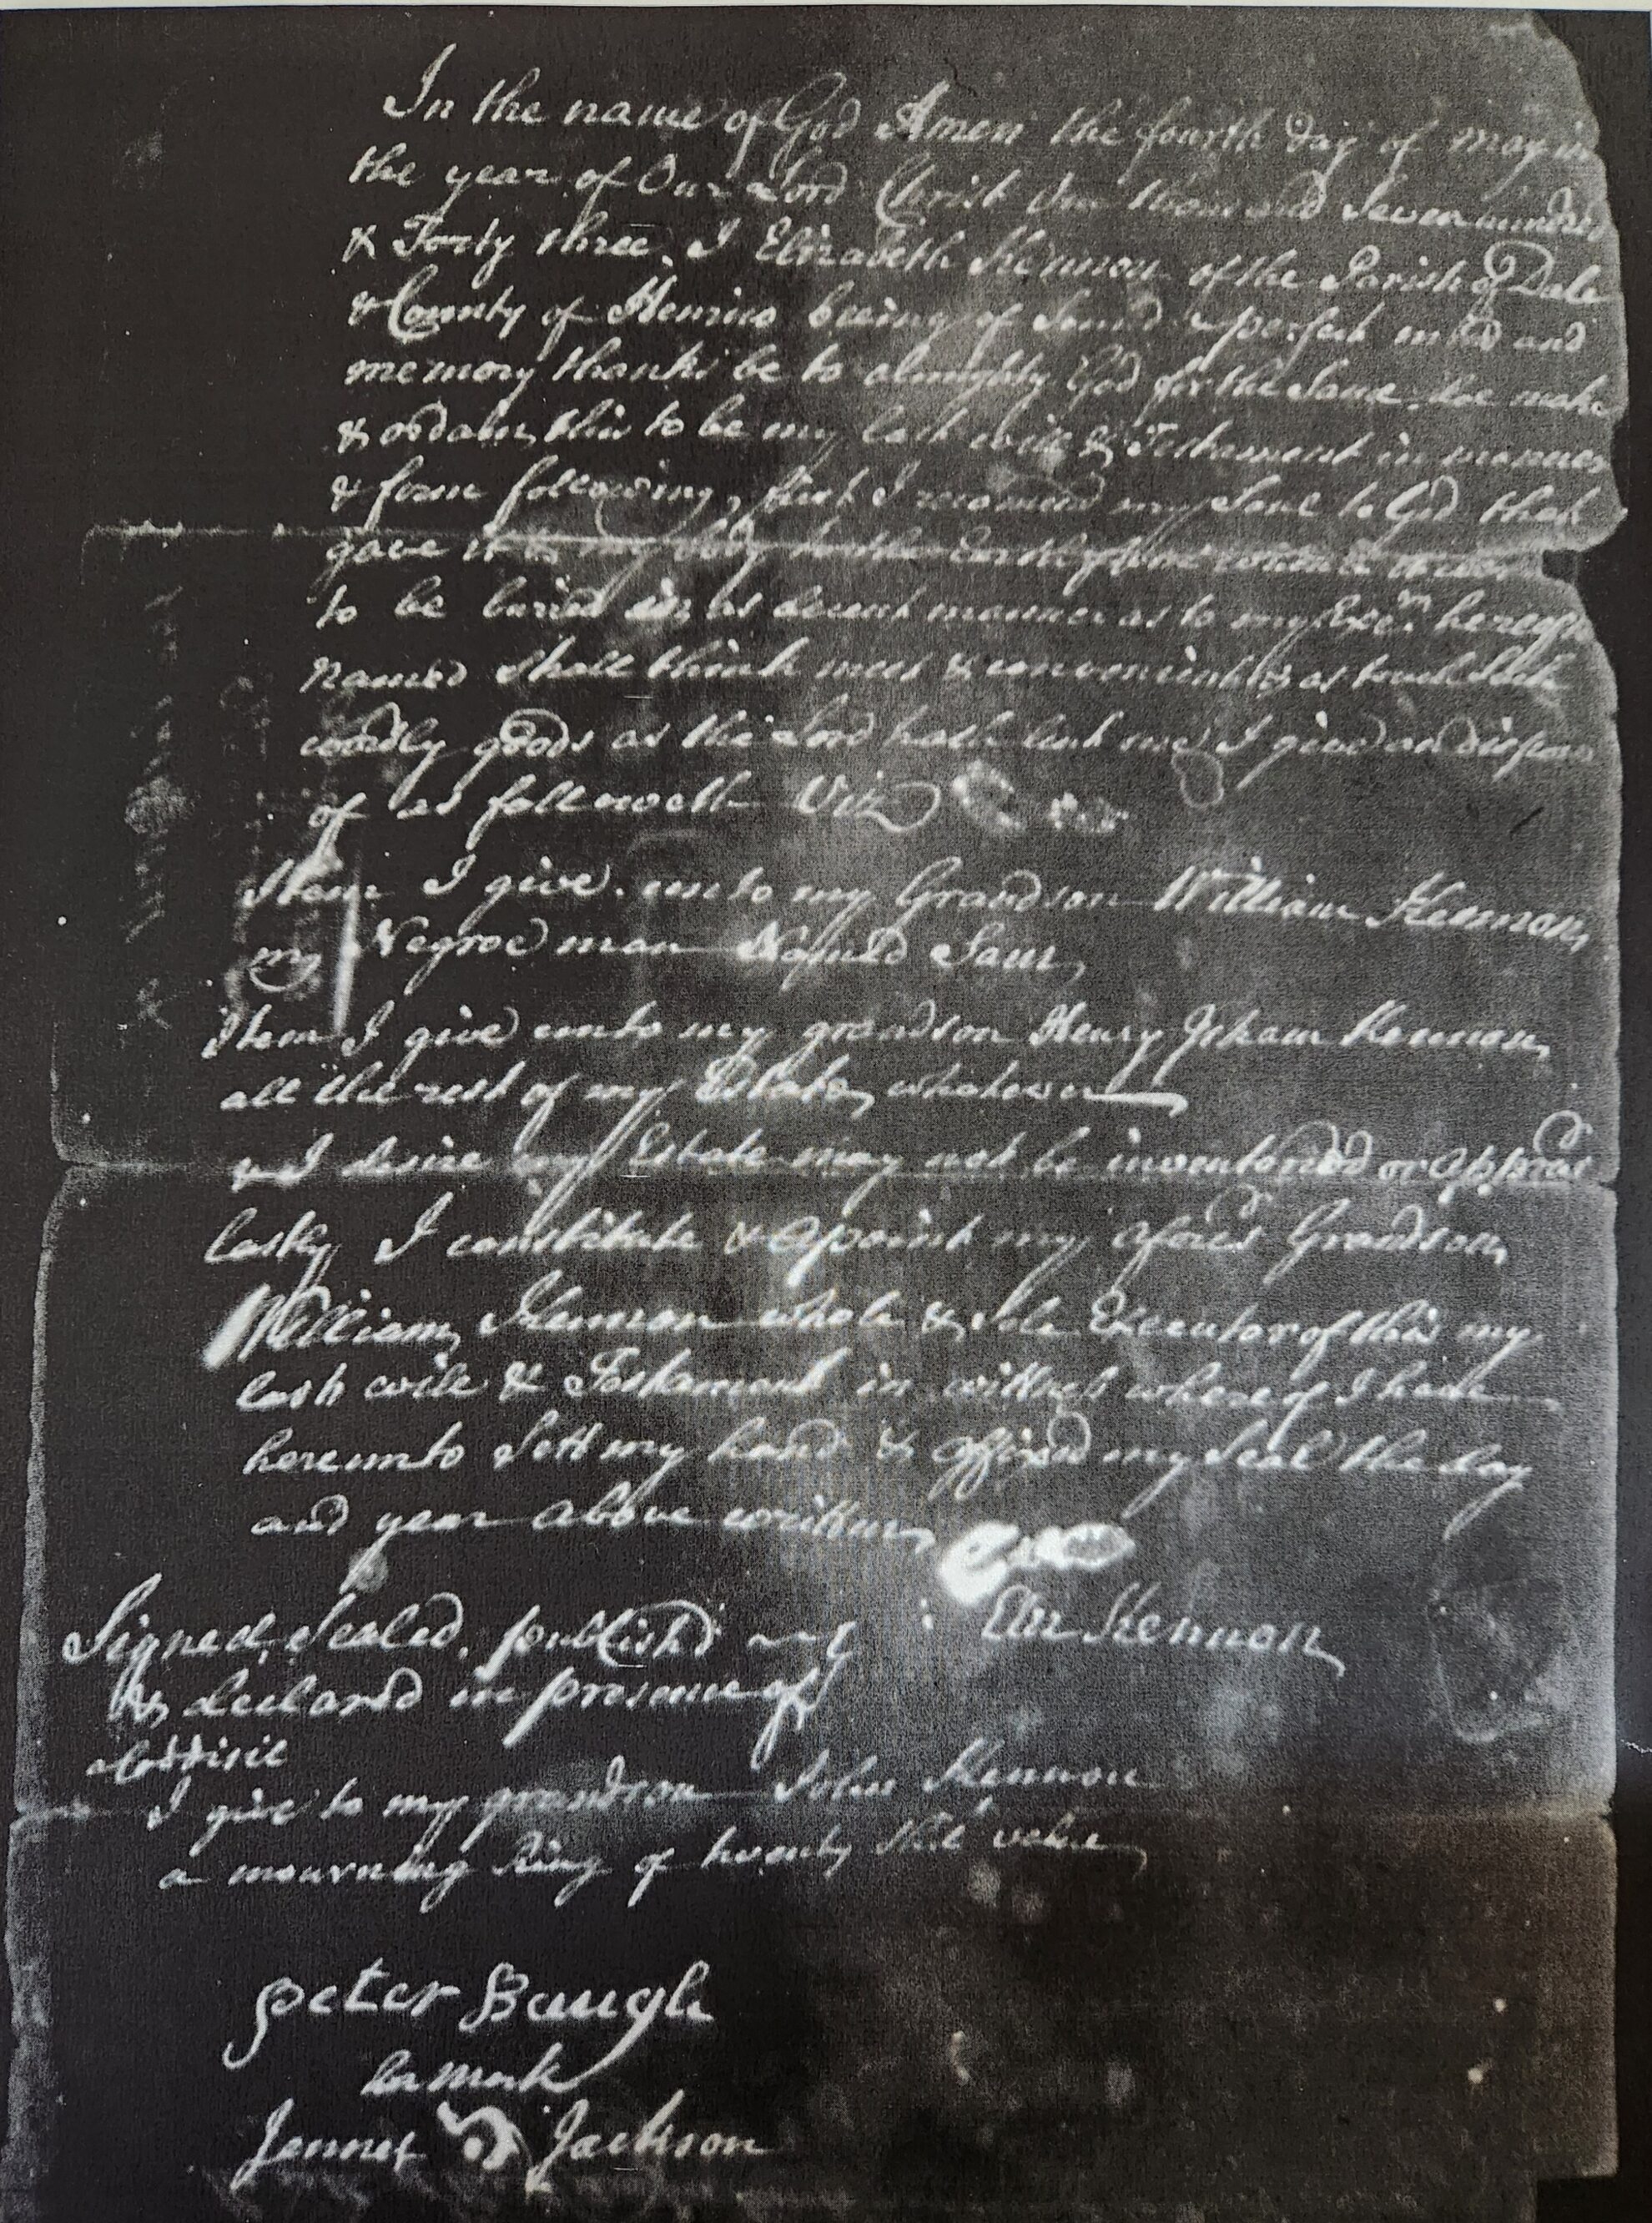 In the name of God Amen the fourth day of may in
the year of Our Lord Christ One thousand Seven hundred
& Forty three, I Elizabeth Kennon of the Parish of Dale
& County of Henrico being of Sound & perfect mind and
memory thanks be to almighty God for the Same, doe make
& ordain this to be my last will & Testament in manner
& form following, first I recomend my Soul to God that
gave it & my body to the Earth from whence
to be buried in as decent manner as to my Exec.rs hereafter
named Shall think meet & convenient & as touch
wordly goods as the Lord hath lent me, I give and dispose
of as followeth Viz
Item I give unto my Grandson William Kennon,
my Negroe man Named Sam,
Item I give unto my grandson Henry Isham Kennon,
all the rest of my Estate, whatsoever
and I desire my Estate may not be inventoried or appras'd
lastly I constitute & apoint my afores'd Grandson,
William Kennon whole & Sole Executor of this my
last will & Testament in wittness whereof I have
hereunto Sett my hand & affixed my Seal the day
and year above written,
Signed, Sealed, publish'd Eliz Kennon
& declared in presence of
I give to my grandson John Kennon
a mourning Ring of twenty shil' value
Peter Baugh
her mark
Jennet Jackson